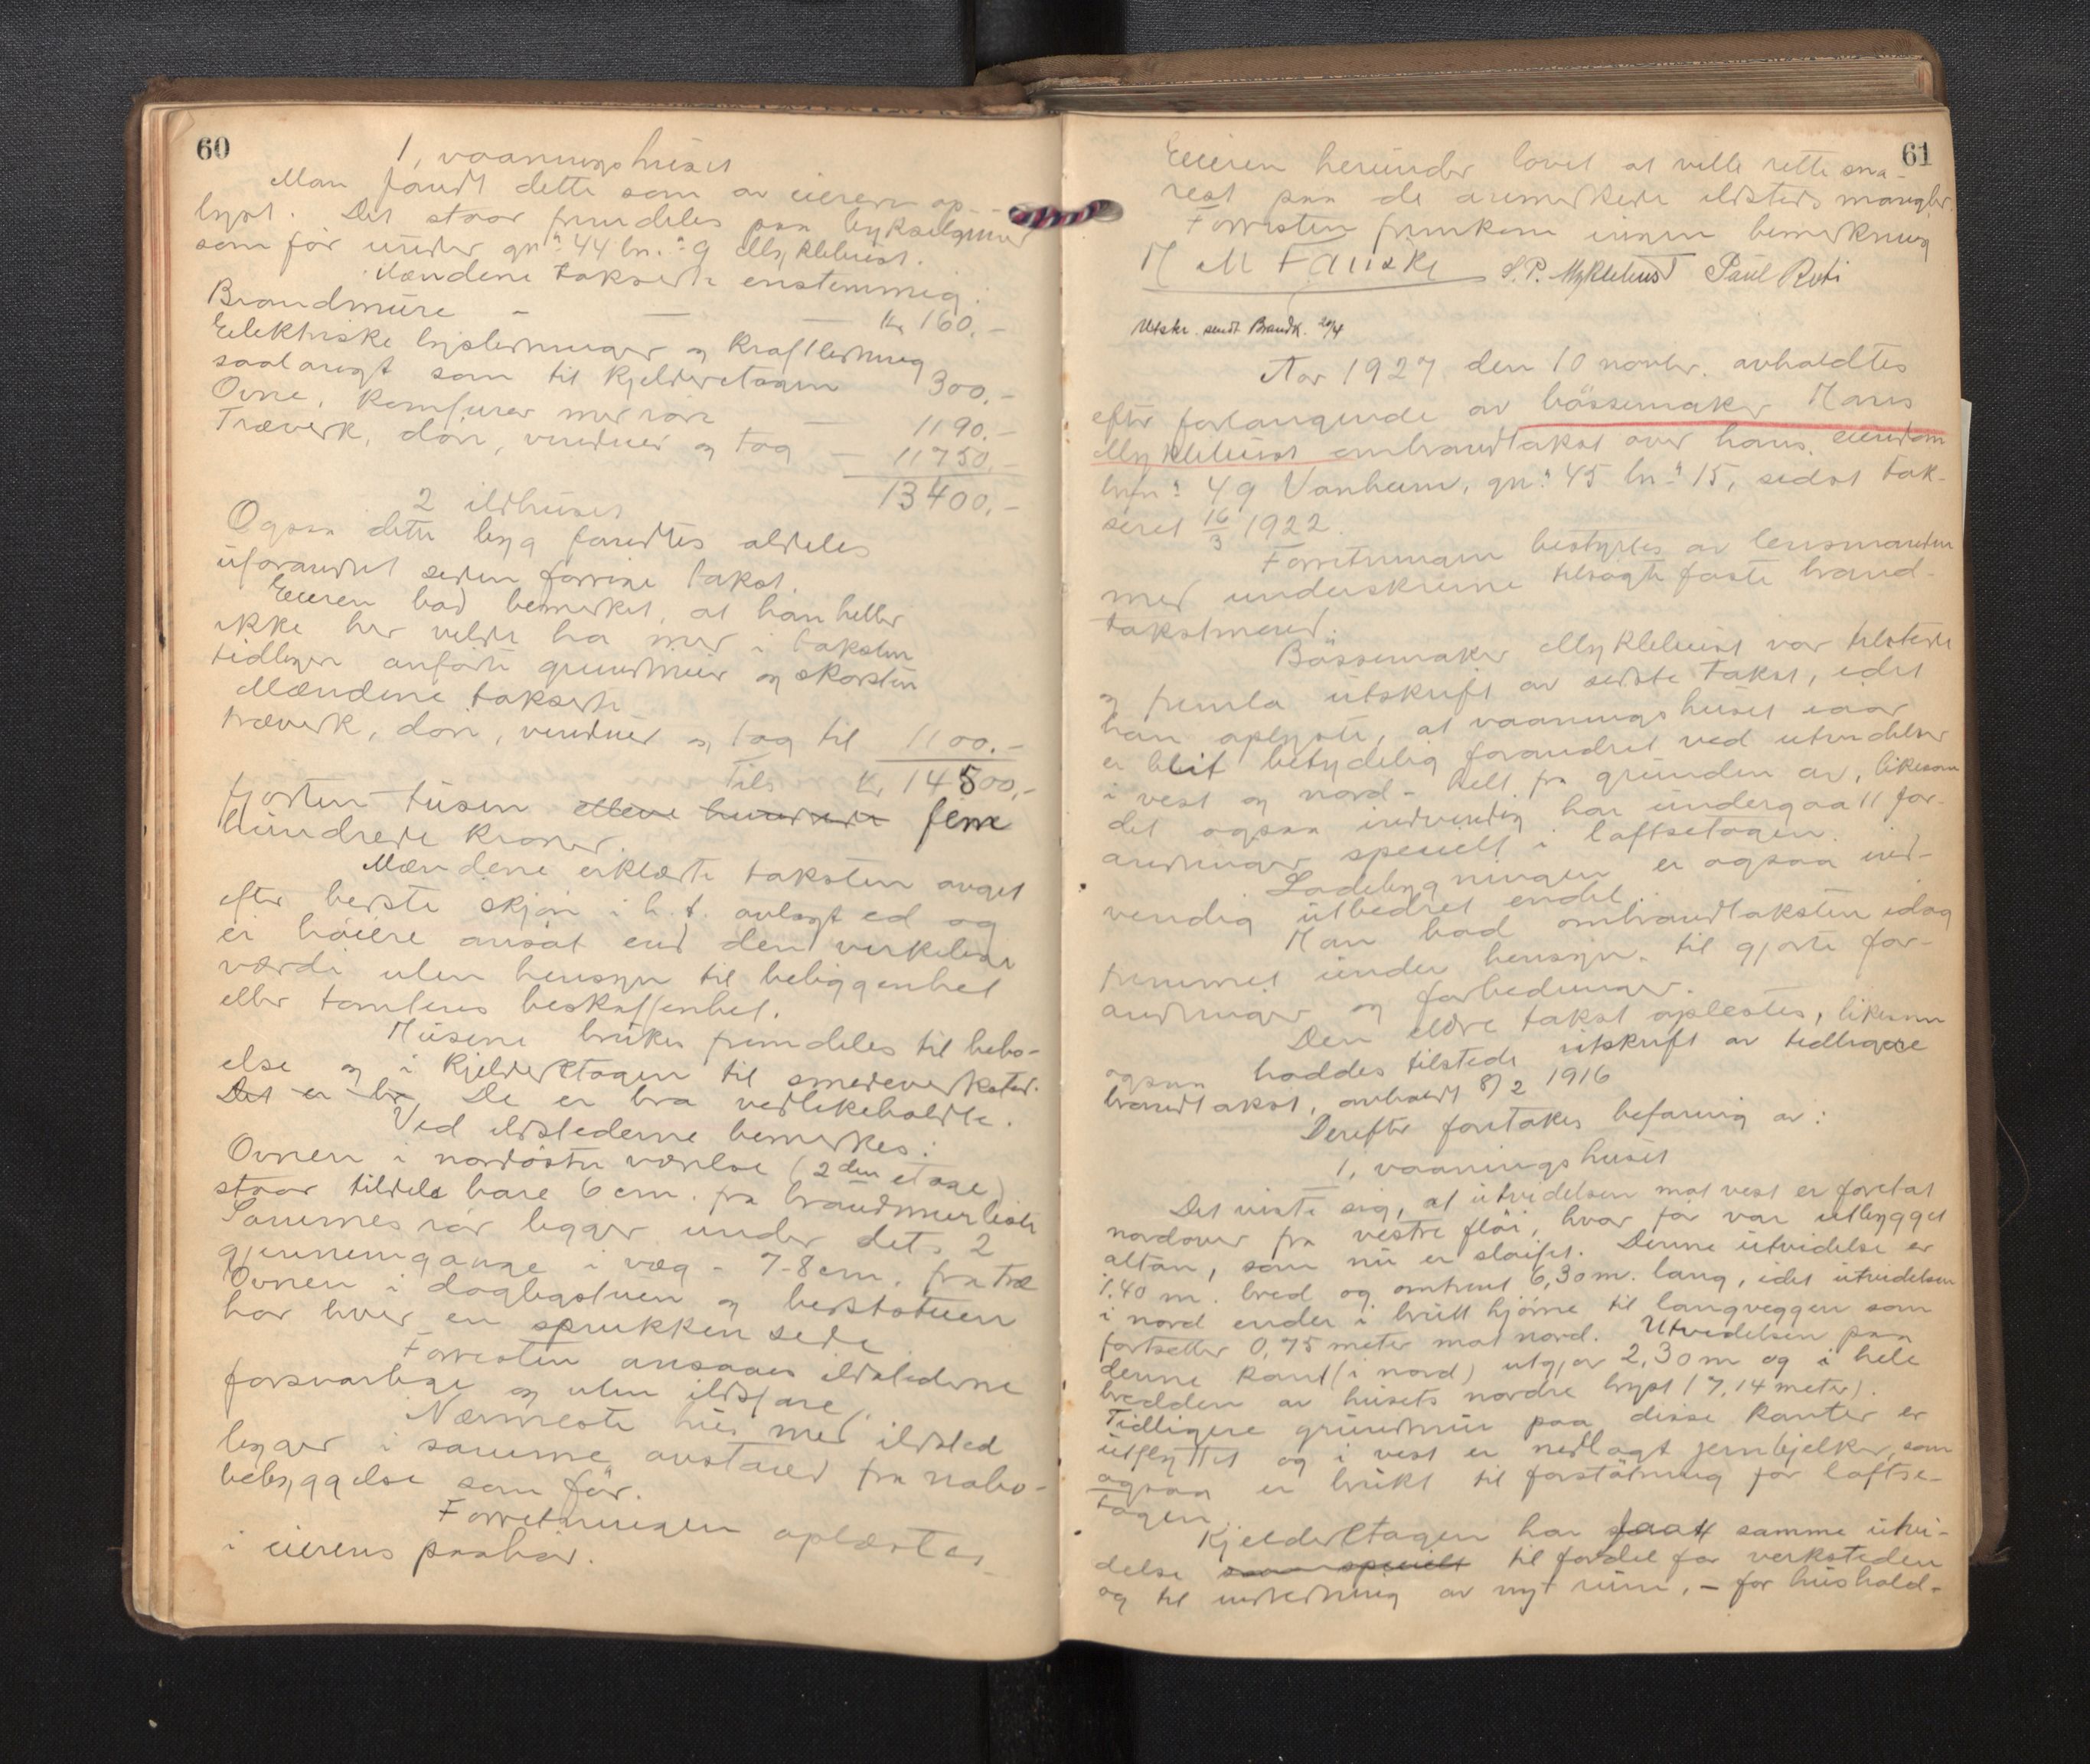 60
1, vaaningshuset
Man fandt dette som av eieren op-
lyst. Det staar fremdeles paa bykselgrund
som før under gn. 44 bn. 9 Myklebust.
Mændene takserte enstemmig:
Brandmure - — — Kr. 160.-
Elektriske lysledninger og kraftledning
saalangt som til kjelderetagen 300.-
Ovne, komfurer med rør — 1190.-
Træverk, dør, vinduer og tag — 11750.-
13400.-
2 ildhuset
Ogsaa dette byg fandtes aldeles
uforandret siden forrige takst.
Eieren bad bemerket, at han heller
ikke her vilde ha med i taksten
tidligere anførte grundmur og skorsten
Mændene takserte
træverk, dør, vinduer og tag til 1100.-
Tils. Kr. 14500.-
fjorten tusen elleve hundrede fem
hundrede kroner.
Mændene erklærte taksten avget
efter beste skjøn i h. t. avlagt ed og
ei høiere ansat end den virkelige
værdi uten hensyn til beliggenhet
eller tomtens beskaffenhet.
Husene brukes fremdeles til bebo-
else og i kjelderetagen til smedeverksted.
Det er br. De er bra vedlikeholdte.
Ved ildstederne bemerkes:
Ovnen i nordøstre værelse (2den etage)
staar tildels bare 6 cm. fra brandmurliste
Sammes rør ligger under dets 2
gjennemgange i væg - 7-8 cm. fra træ
Ovnen i dagligstuen og bedststuen
har hver en sprukken side
Forresten ansaaes ildstederne
forsvarlige og uten ildsfare.
Nærmeste hus med ildsted
ligger i samme avstand fra nabo-
bebyggelse som før.
Forretningen oplæstes
i eierens paahør.
61
Eieren herunder lovet at ville rette sna-
rest paa de anmerkede ildsteds mangler.
Forresten fremkom ingen bemerkning
H M Fauske S. P. Myklebust Paul Roti
Utskr. sendt Brandk. 20/4
Aar 1927 den 10 novbr. avholdtes
efter forlangende av bøssemaker Hans
Myklebust ombrandtakst over hans eiendom
brfn. 49 Vanheim, gn. 45 bn. 15, sidst tak-
sert 16/3 1922.
Forretningen bestyrtes av lensmanden
med underskrevne tilsagte faste brand-
takstmænd.
Bøssemaker Myklebust var tilstede
og fremla utskrift av sidste takst, idet
han oplyste, at vaaningshuset iaar
er blit betydelig forandret ved utvidelser
i vest og nord - helt fra grunden av, likesom
det ogsaa indvendig har undergaatt for-
andringer specielt i loftsetagen.
Ladebygningen er ogsaa ind-
vendig utbedret endel.
Man bad ombrandtaksten idag
fremmet under hensyn til gjorte for-
andringer og forbedringer.
Den ældre takst oplæstes, likesom
ogsaa haddes tilstede utskrift av tidligere
brandtakst, avholdt 8/2 1916
Derefter foretakes befaring av:
1, vaaningshuset
Det viste sig, at utvidelsen mot vest er foretat
nordover fra vestre fløi, hvor før var utbygget
altan, som nu er sløifet. Denne utvidelse er
1,40 m. bred og omtrent 6,30 m. lang, idet utvidelsen
i nord ender i brutt hjørne til langveggen som
fortsetter 0,75 meter mot nord. Utvidelsen paa
denne kant (i nord) utgjør 2,30 m og i hele
bredden av husets nordre byst (7,14 meter).
Tidligere grundmur paa disse kanter er
utflyttet og i vest er nedlagt jernbjelker, som
ogsaa er brukt til forstøtning for loftse-
tagen.
Kjelderetagen har faatt samme utvi-
delse som specielt til fordel for verksteden
og til indredning av nyt rum, - for hushold-